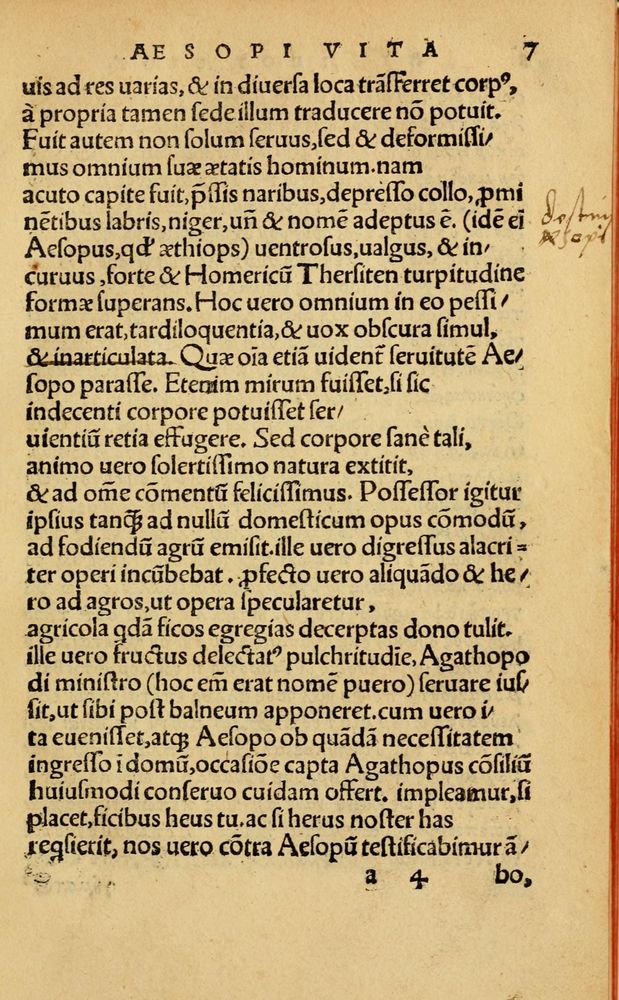 AE SOPI VITA 7
uis ad res uarias, & in diuersa loca trāsferret corpꝰ,
à propria tamen sede illum traducere nō potuit.
Fuit autem non solum seruus, sed & deformissi/
mus omnium suæ ætatis hominum. nam
acuto capite fuit, p̄ssis naribus, depresso collo, ꝓmi
nētibus labris, niger, uñ & nomē adeptus ē. (idē eī
Aesopus, qd' æthiops) uentrosus, ualgus, & in/
curuus, forte & Homericū Thersiten turpitudine
formæ superans. Hoc uero omnium in eo pessi/
mum erat, tardiloquentia, & uox obscura simul,
& inarticulata. Quæ oīa etiā uident̄ seruitutē Ae/
sopo parasse. Etenim mirum fuisset, si sic
indecenti corpore potuisset ser/
uientiū retia effugere. Sed corpore sanè tali,
animo uero solertissimo natura extitit,
& ad om̄e cōmentū felicissimus. Possessor igitur
ipsius tanꝗ̄ ad nullū domesticum opus cōmodū,
ad fodiendū agrū emisit. ille uero digressus alacri=
ter operi incūbebat. ꝓfecto uero aliquādo & he/
ro ad agros, ut opera specularetur,
agricola qdā ficos egregias decerptas dono tulit.
ille uero fructus delectatꝰ pulchritudīe, Agathopo
di ministro (hoc em̄ erat nomē puero) seruare ius
sit, ut sibi post balneum apponeret. cum uero i/
ta euenisset, atqꝫ Aesopo ob quādā necessitatem
ingresso ī domū, occasiōe capta Agathopus cōsiliū
huiusmodi conseruo cuidam offert. impleamur, si
placet, ficibus heus tu. ac si herus noster has
reqsierit, nos uero cōtra Aesopū testificabimur ā/
a 4 bo,